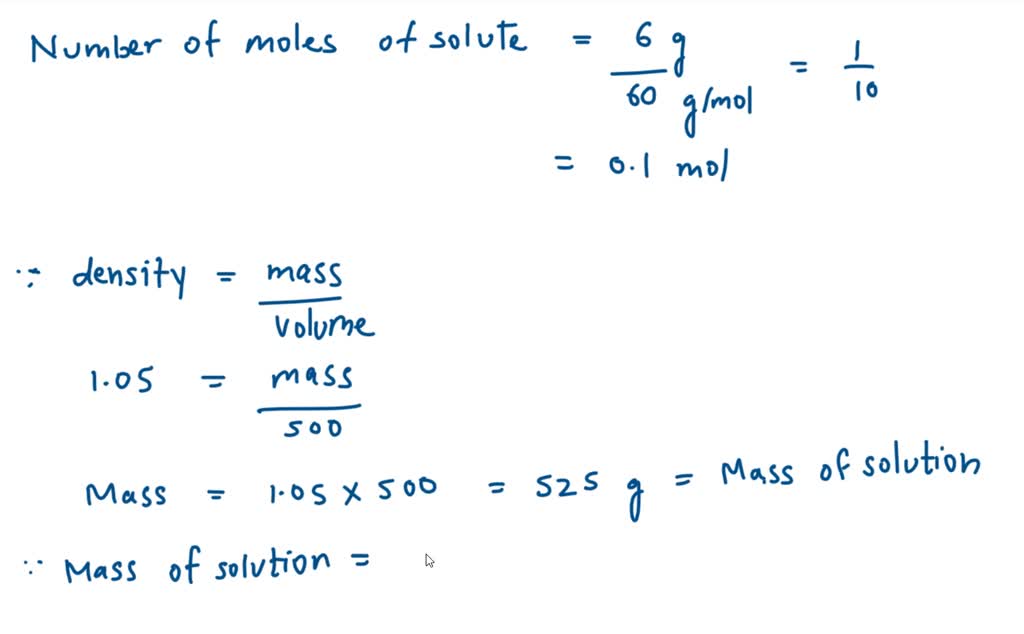 Number of moles of solute = 6 g / 60 g/mol = 1/10
= 0.1 mol
∵ density = mass / volume
1.05 = mass / 500
Mass = 1.05 × 500 = 525 g = Mass of solution
∵ Mass of solution =